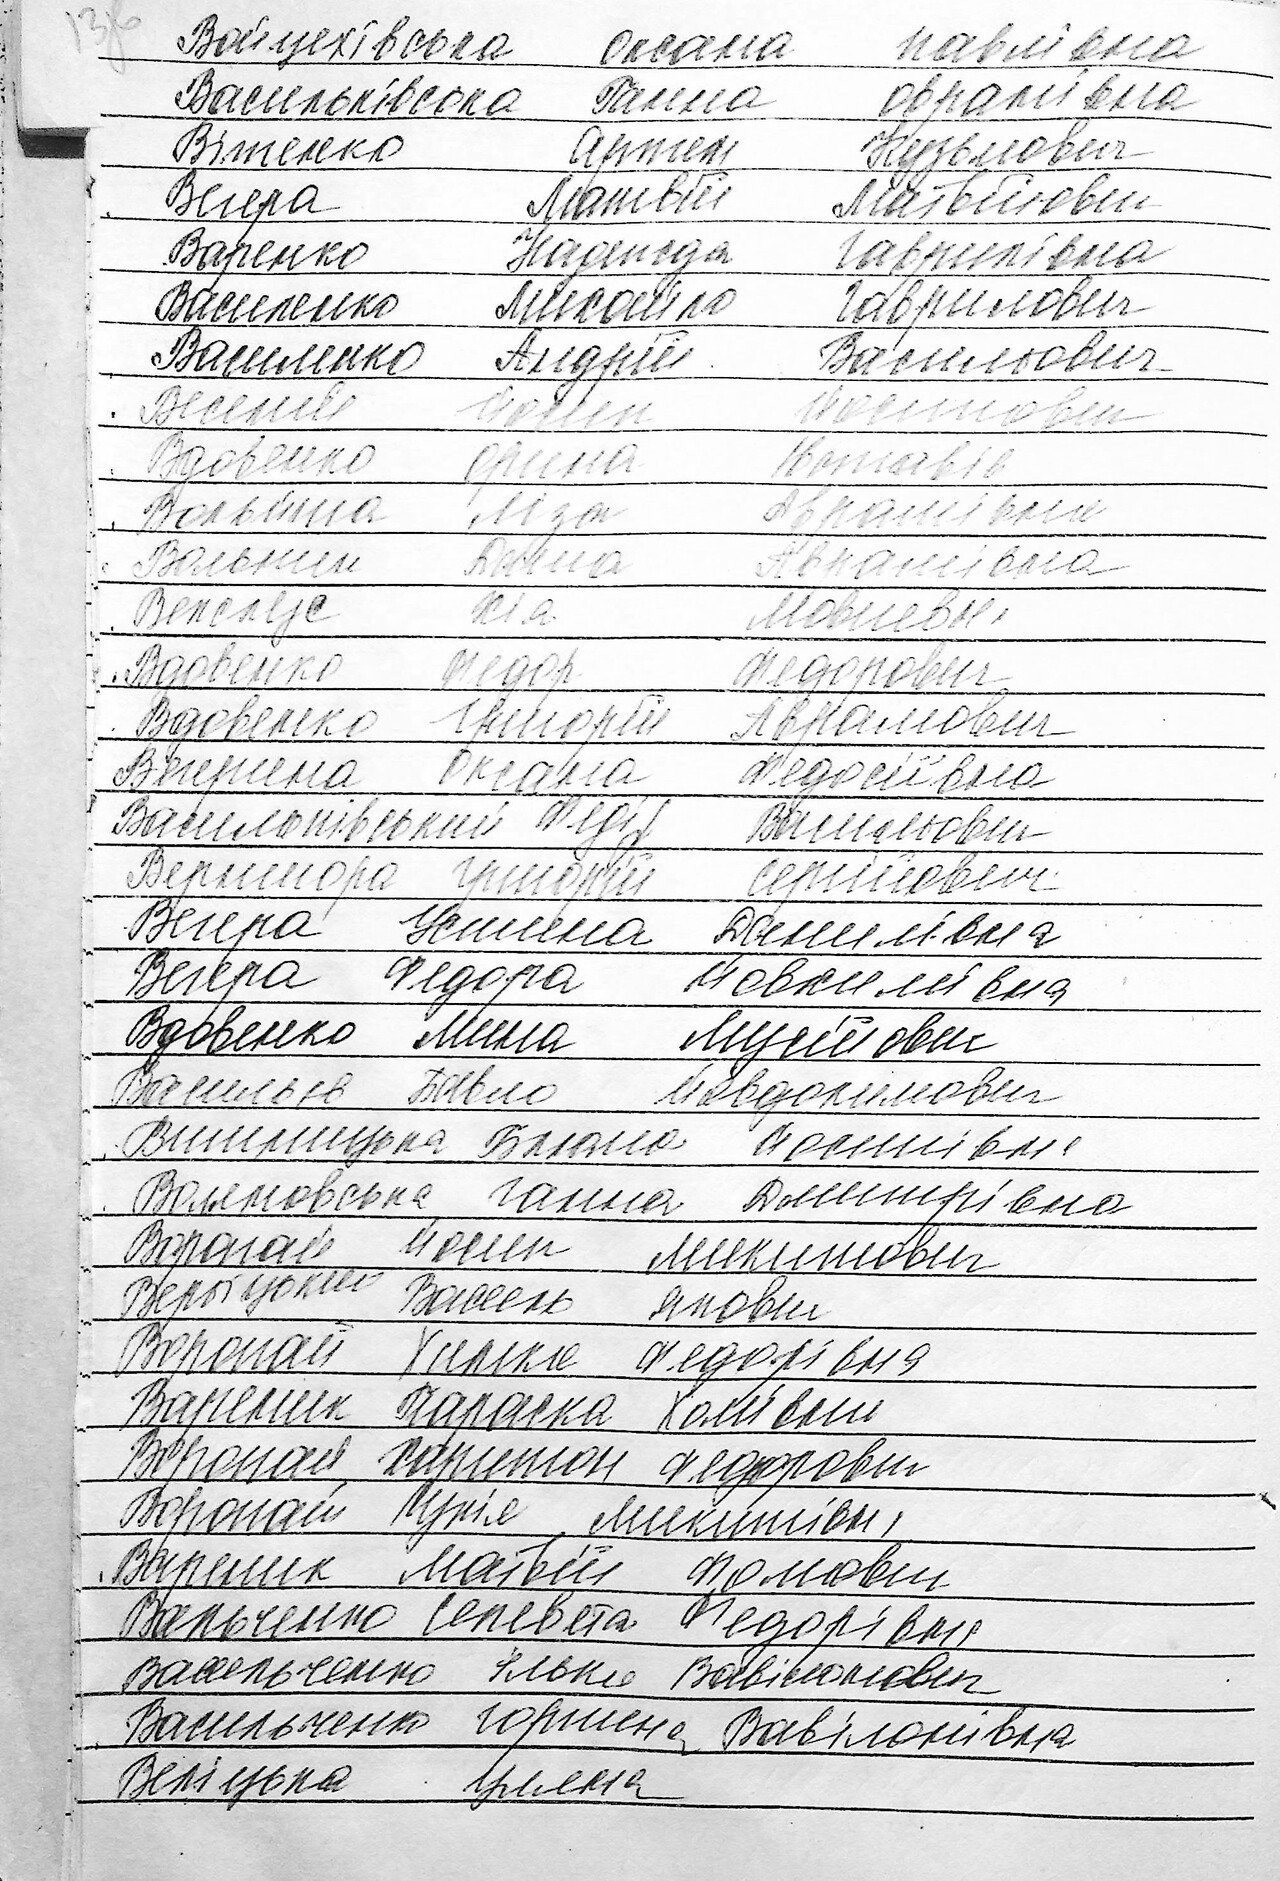 136
Войцехівська Оксана Павлівна
Васильківська Ганна Овраміївна
Вітенко Артем Кузьмович
Вегера Матвій Матвійович
Варенко Надежда Гаврилівна
Василенко Михайло Гаврилович
Василенко Андрій Васильович
Веселий Йосип Йосипович
Вдовенко Орина
Вольіна Ліза Аврамівна
Вольнин Дина Аврамівна
Кіа Мовшевна
Вдовенко Федор Федорович
Вдовенко Григорій Аврамович
Вегерина Оксана Федосіївна
Васильківський Федір Васильович
Вернигора Григорій Сергійович
Вегера Устина Данилівна
Вегера Федора Йовхимівна
Вдовенко Мина Мусійович
Васильєв Павло Йовдокимович
Винницька Йосипівна
Воляновська Ганна Дмитрівна
Воропай Йосип Микитович
Василь Якович
Воропай Химка Федорівна
Вареник Параска Хомівна
Воропай Харитон Федорович
Воропай Юхія Микитівна
Вареник Матвій Фомович
Вальченко Селевета Федорівна
Васельченко Ілько Вавілонович
Васильченко Горпена Вавілонівна
Веліцька Уляна